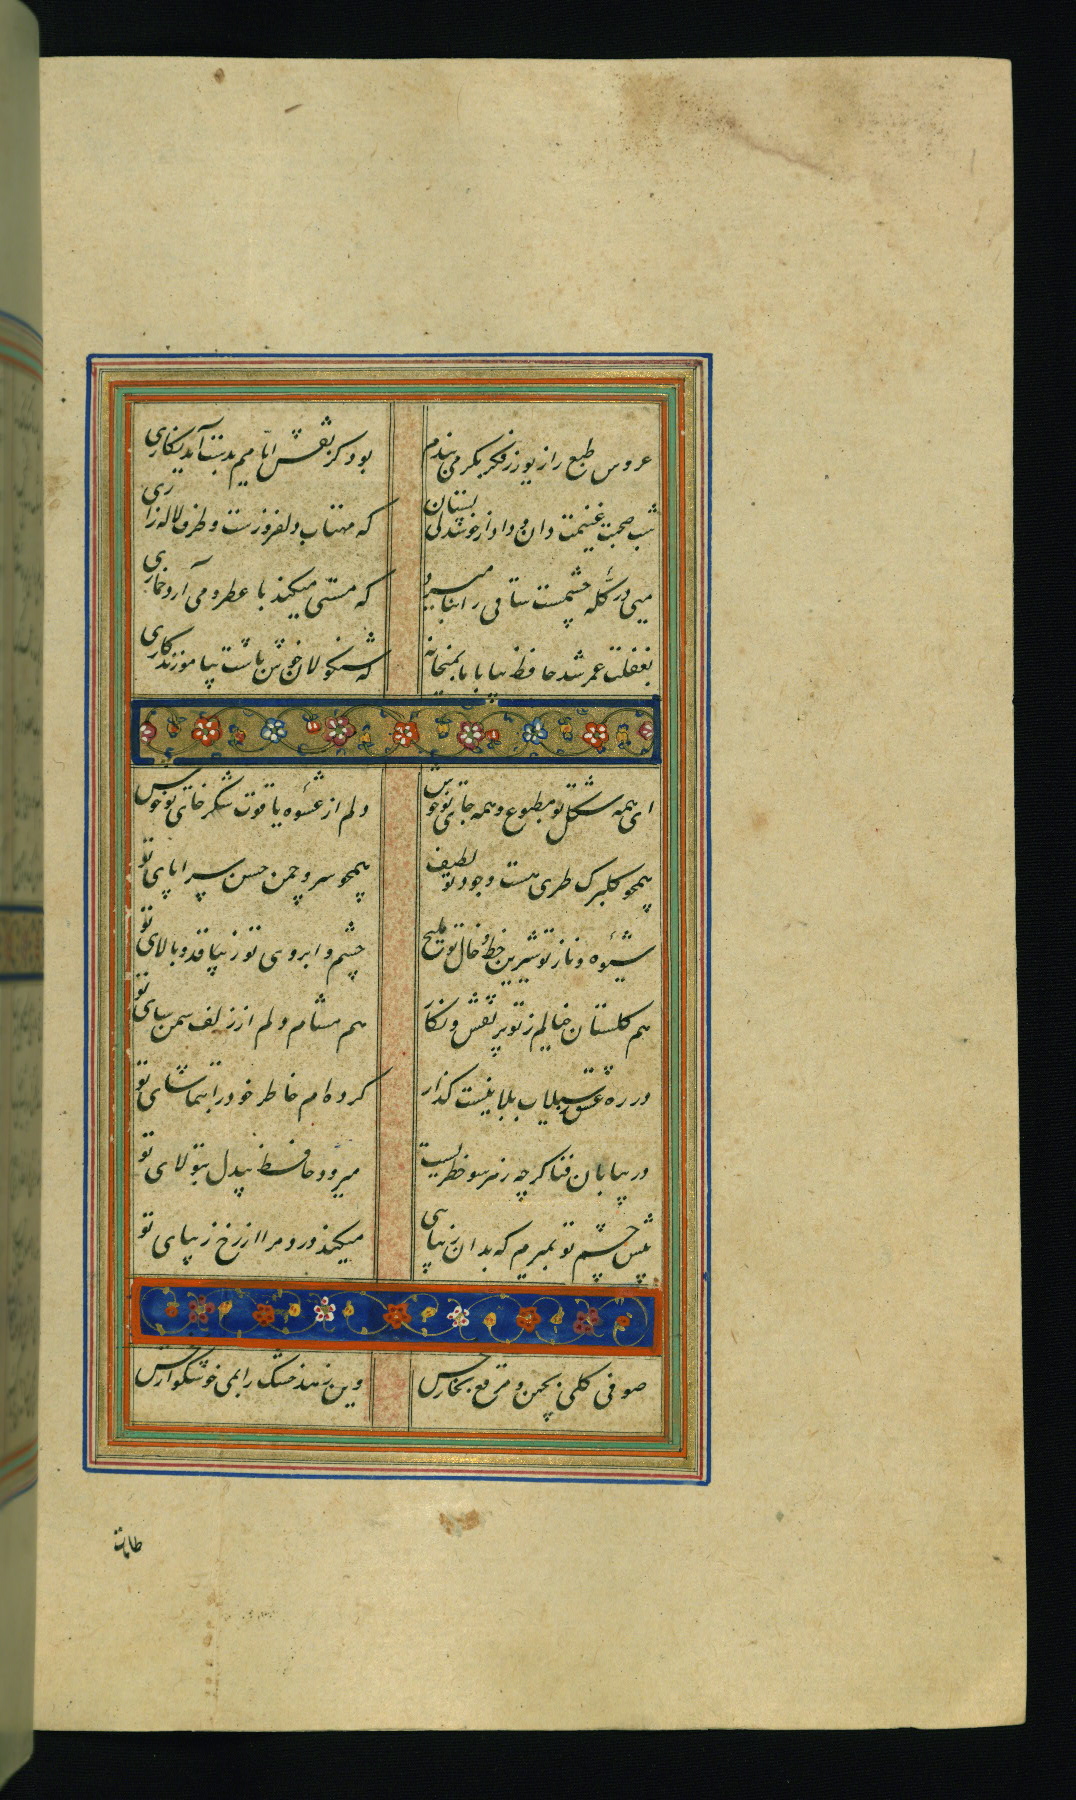 عروس طبع را زیور ز فکر بکر می بندم
بود کز نقش ایامم بدست آید نگاری
شب صحبت غنیمت دان و داد از خوشدلی بستان
که مهتاب دلفروزست و طرف لاله زاری
میی در کله چشمست ساقی را بنامیزد
که مستی میکند با عقل و می آرد خماری
بغفلت عمر شد حافظ بیا با ما بمیخانه
که شنگولان خوش باشت بیاموزند کاری
ای همه شکل تو مطبوع و همه جای تو خوش
دلم از عشوه یاقوت شکر خای تو خوش
همچو گلبرک طری هست وجود تو لطیف
همچو سرو چمن حسن سراپای تو
شیوه و ناز تو شیرین خط و خال تو ملیح
چشم و ابروی تو زیبا قد و بالای تو
هم گلستان خیالم ز تو پر نقش و نگار
هم مشام دلم از زلف سمن سای تو
در ره عشق ز سیلاب بلا نیست گذار
کرده ام خاطر خود را بتماشای تو
در بیابان فنا گر چه ز هر سو خطریست
میرود حافظ بیدل بتولای تو
پیش چشم تو بمیرم که بدان زیبایی
میکند درد مرا از رخ زیبای تو
صوفی گلی بچین و مرقع بخار بخش
وین زهد خشک را بمی خوشگوار بخش
طامات